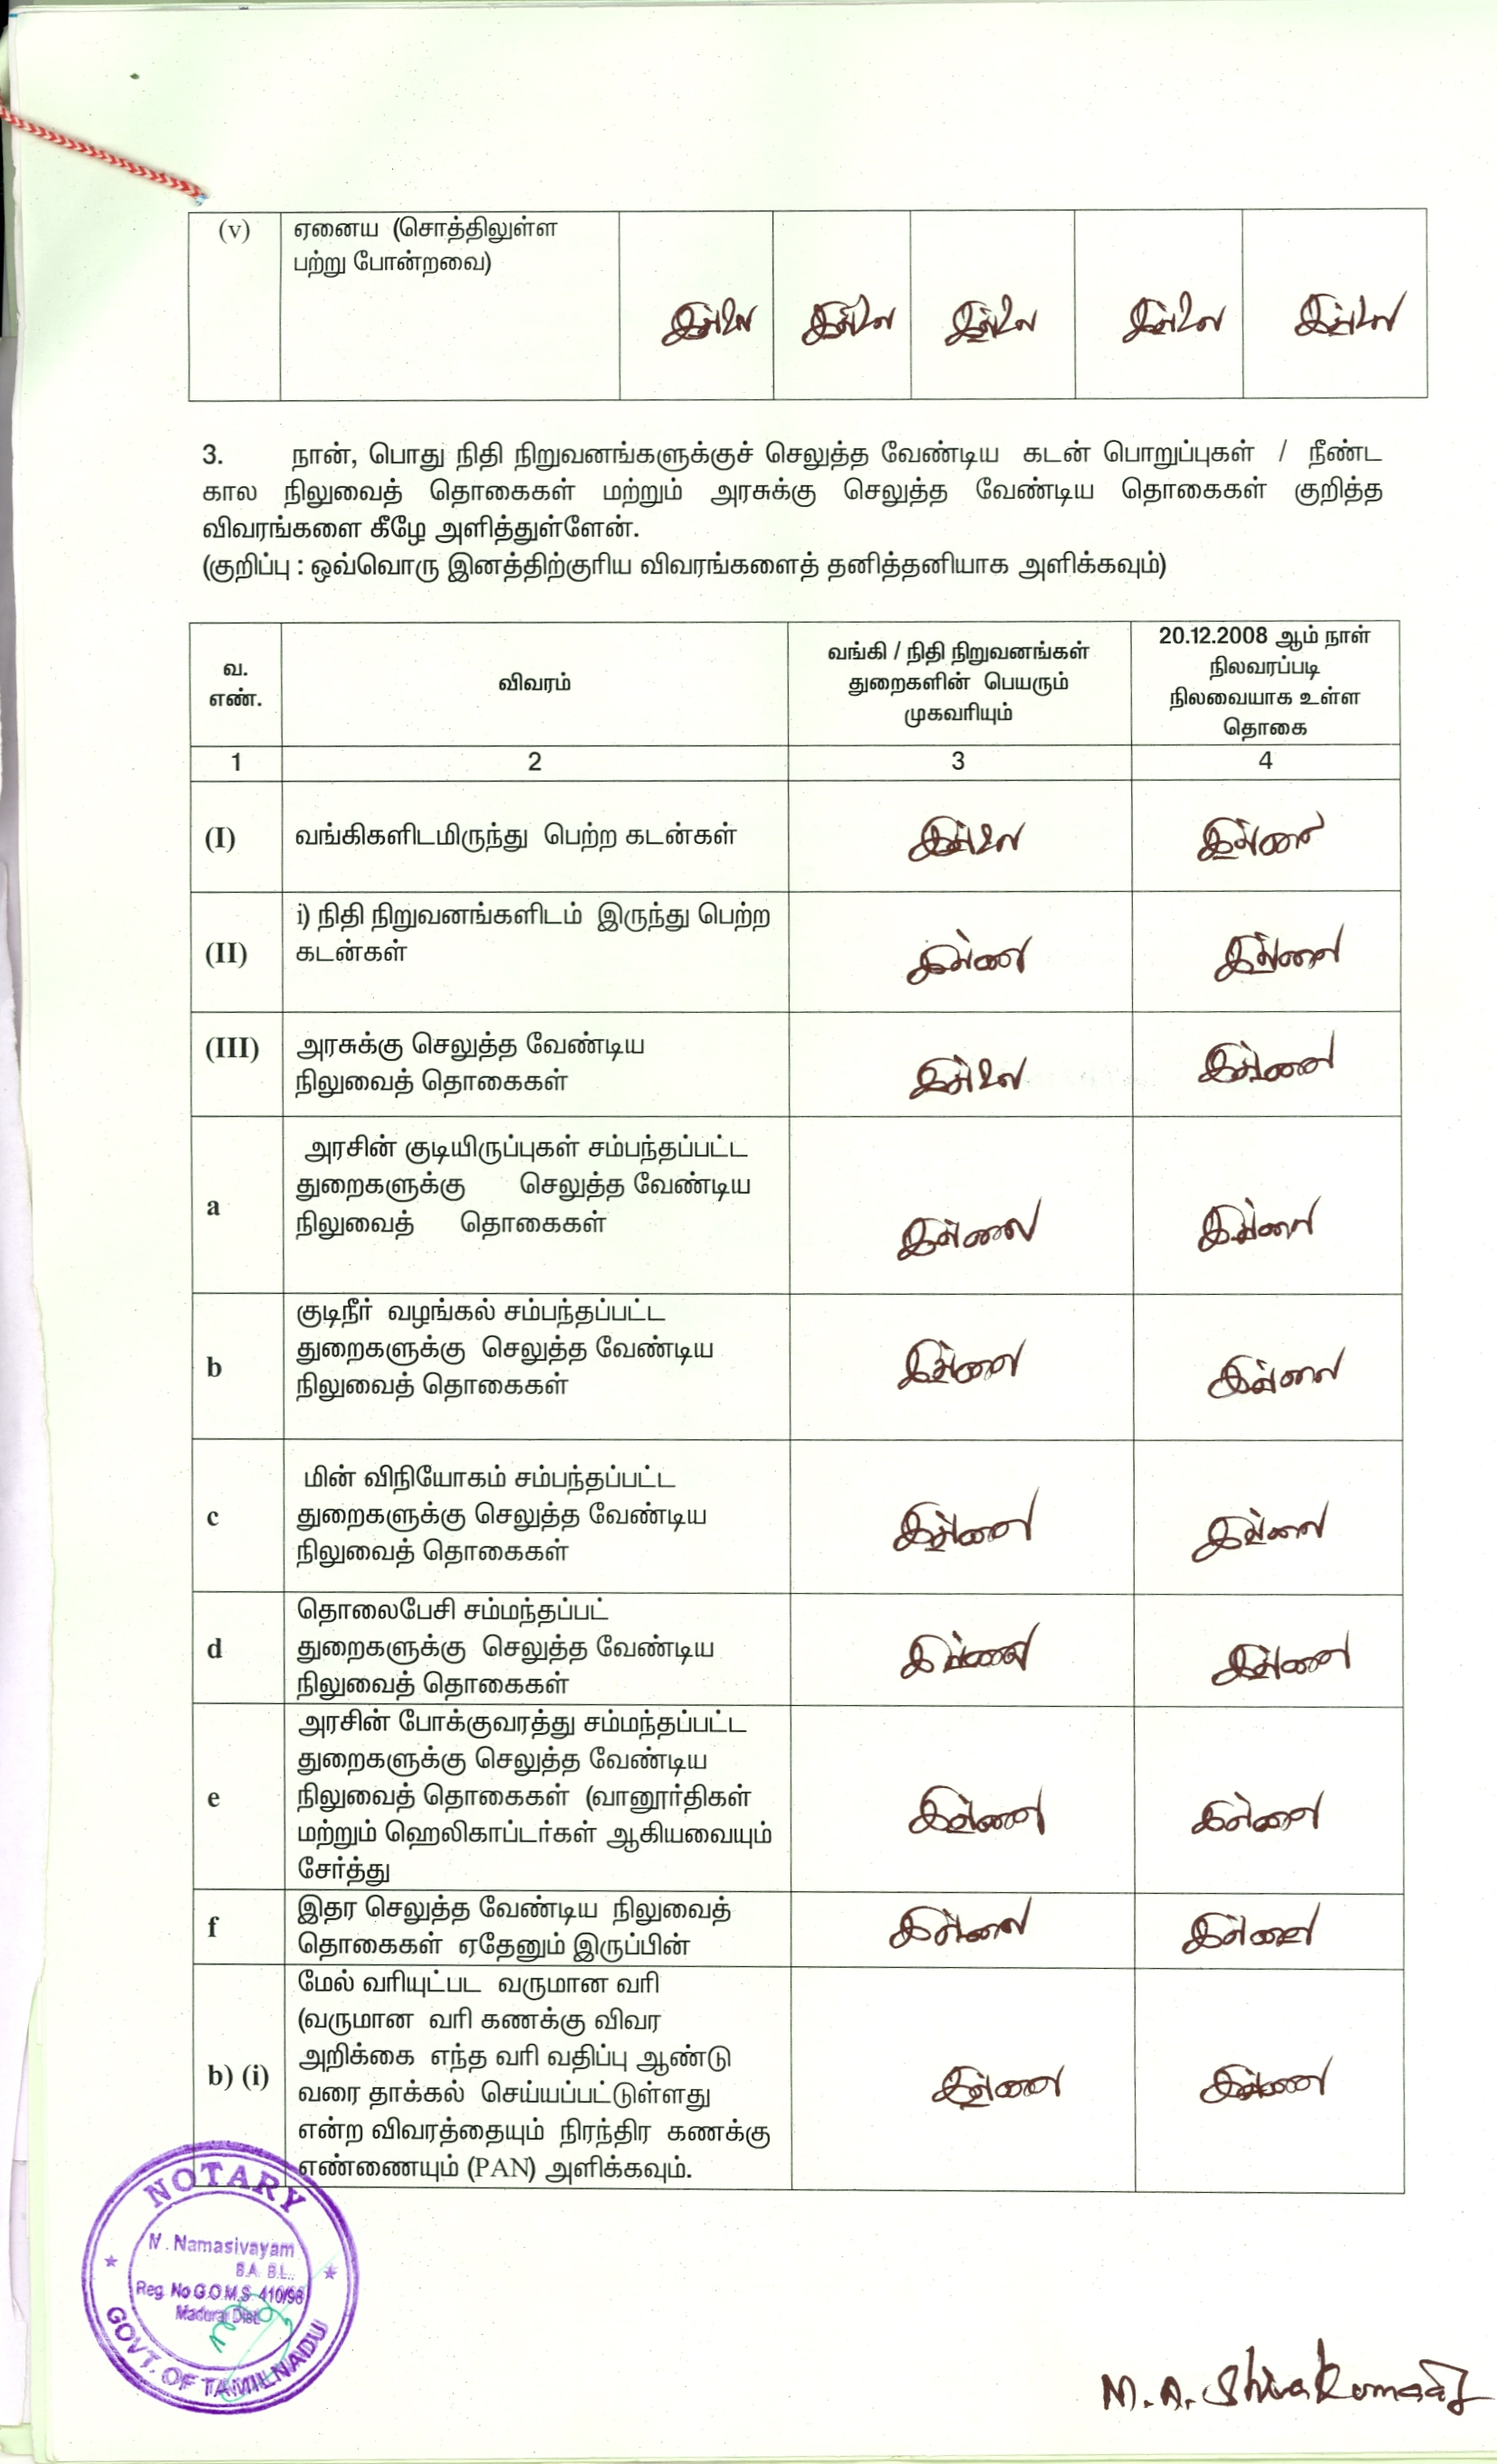 (v) ஏனைய (சொத்திலுள்ள
பற்று போன்றவை)
இல்லை இல்லை இல்லை இல்லை இல்லை
3. நான், பொது நிதி நிறுவனங்களுக்குச் செலுத்த வேண்டிய கடன் பொறுப்புகள் / நீண்ட
கால நிலுவைத் தொகைகள் மற்றும் அரசுக்கு செலுத்த வேண்டிய தொகைகள் குறித்த
விவரங்களை கீழே அளித்துள்ளேன்.
(குறிப்பு : ஒவ்வொரு இனத்திற்குரிய விவரங்களைத் தனித்தனியாக அளிக்கவும்)
வ.
எண்.
விவரம்
வங்கி / நிதி நிறுவனங்கள்
துறைகளின் பெயரும்
முகவரியும்
20.12.2008 ஆம் நாள்
நிலவரப்படி
நிலவையாக உள்ள
தொகை
1 2 3 4
(I) வங்கிகளிடமிருந்து பெற்ற கடன்கள் இல்லை இல்லை
(II) i) நிதி நிறுவனங்களிடம் இருந்து பெற்ற
கடன்கள் இல்லை இல்லை
(III) அரசுக்கு செலுத்த வேண்டிய
நிலுவைத் தொகைகள் இல்லை இல்லை
a அரசின் குடியிருப்புகள் சம்பந்தப்பட்ட
துறைகளுக்கு செலுத்த வேண்டிய
நிலுவைத் தொகைகள் இல்லை இல்லை
b குடிநீர் வழங்கல் சம்பந்தப்பட்ட
துறைகளுக்கு செலுத்த வேண்டிய
நிலுவைத் தொகைகள் இல்லை இல்லை
c மின் விநியோகம் சம்பந்தப்பட்ட
துறைகளுக்கு செலுத்த வேண்டிய
நிலுவைத் தொகைகள் இல்லை இல்லை
d தொலைபேசி சம்மந்தப்பட்
துறைகளுக்கு செலுத்த வேண்டிய
நிலுவைத் தொகைகள் இல்லை இல்லை
e அரசின் போக்குவரத்து சம்மந்தப்பட்ட
துறைகளுக்கு செலுத்த வேண்டிய
நிலுவைத் தொகைகள் (வானூர்திகள்
மற்றும் ஹெலிகாப்டர்கள் ஆகியவையும்
சேர்த்து இல்லை இல்லை
f இதர செலுத்த வேண்டிய நிலுவைத்
தொகைகள் ஏதேனும் இருப்பின் இல்லை இல்லை
b) (i) மேல் வரியுட்பட வருமான வரி
(வருமான வரி கணக்கு விவர
அறிக்கை எந்த வரி வதிப்பு ஆண்டு
வரை தாக்கல் செய்யப்பட்டுள்ளது
என்ற விவரத்தையும் நிரந்திர கணக்கு
எண்ணையும் (PAN) அளிக்கவும். இல்லை இல்லை
NOTARY
N. Namasivayam
B.A. B.L.,
Reg. No G.O.M.S 410/98
Madurai Dist.
GOVT. OF TAMILNADU
M.A. Shivakumaar